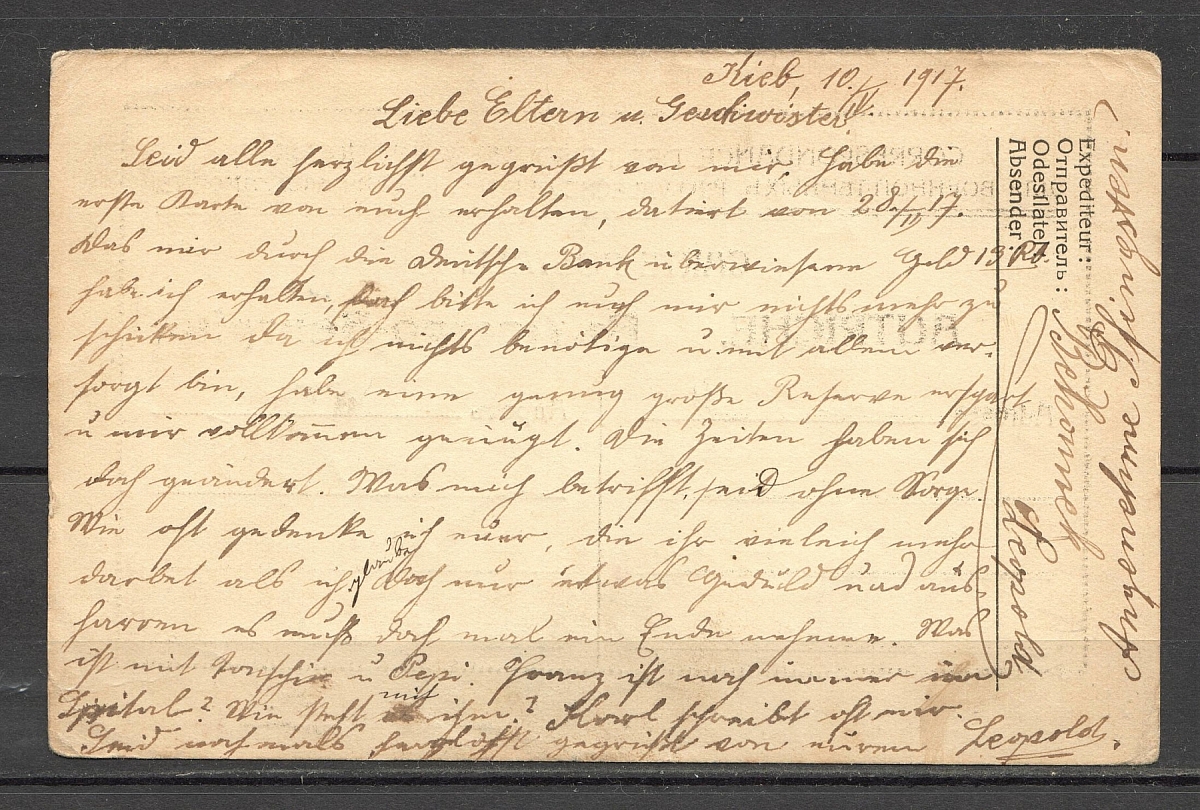 Kieb, 10./IV. 1917.
Liebe Eltern u. Geschwister
Seid alle herzlichst gegrüßt von mir, habe die
erste Karte von euch erhalten, datiert von 28./II 17.
Das mir durch die Deutsche Bank überwiesene Geld 13 Rb.
habe ich erhalten, doch bitte ich euch mir nichts mehr zu
schicken da ich nichts benötige u. mit allem ver-
sorgt bin, habe eine genug große Reserve erspart
u mir vollkommen genügt. Die Zeiten haben sich
doch geändert. Was mich betrifft, seid ohne Sorge.
Wie oft gedenke ich eurer, die ihr vieleich mehr
darbet als ich glaube
doch nur etwas Geduld und aus-
harren es muß doch mal ein Ende nehmen. Was
ist mit u Pepi. Franz ist noch immer im
Spital? Wie steht mit ihm? Karl schreibt oft mir.
Seid nochmals herzlichst gegrüßt von eurem Leopold.
Expediteur:
Отправитель:
Odesílatel
Absender:
Leopold